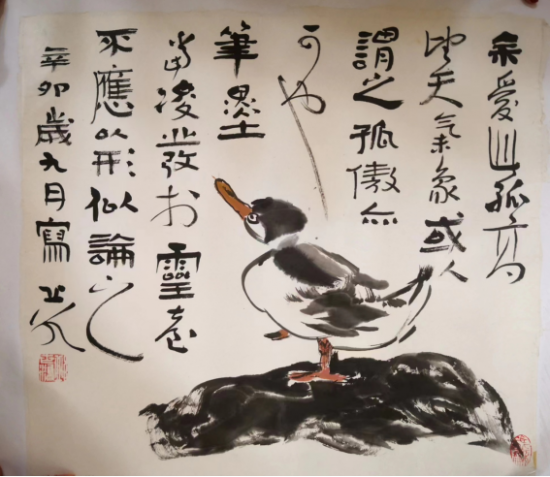 余愛孤高
天氣象或人
謂之孤傲亦
可也
筆墨
當發於靈臺
不應以形似論之
辛卯歲九月寫